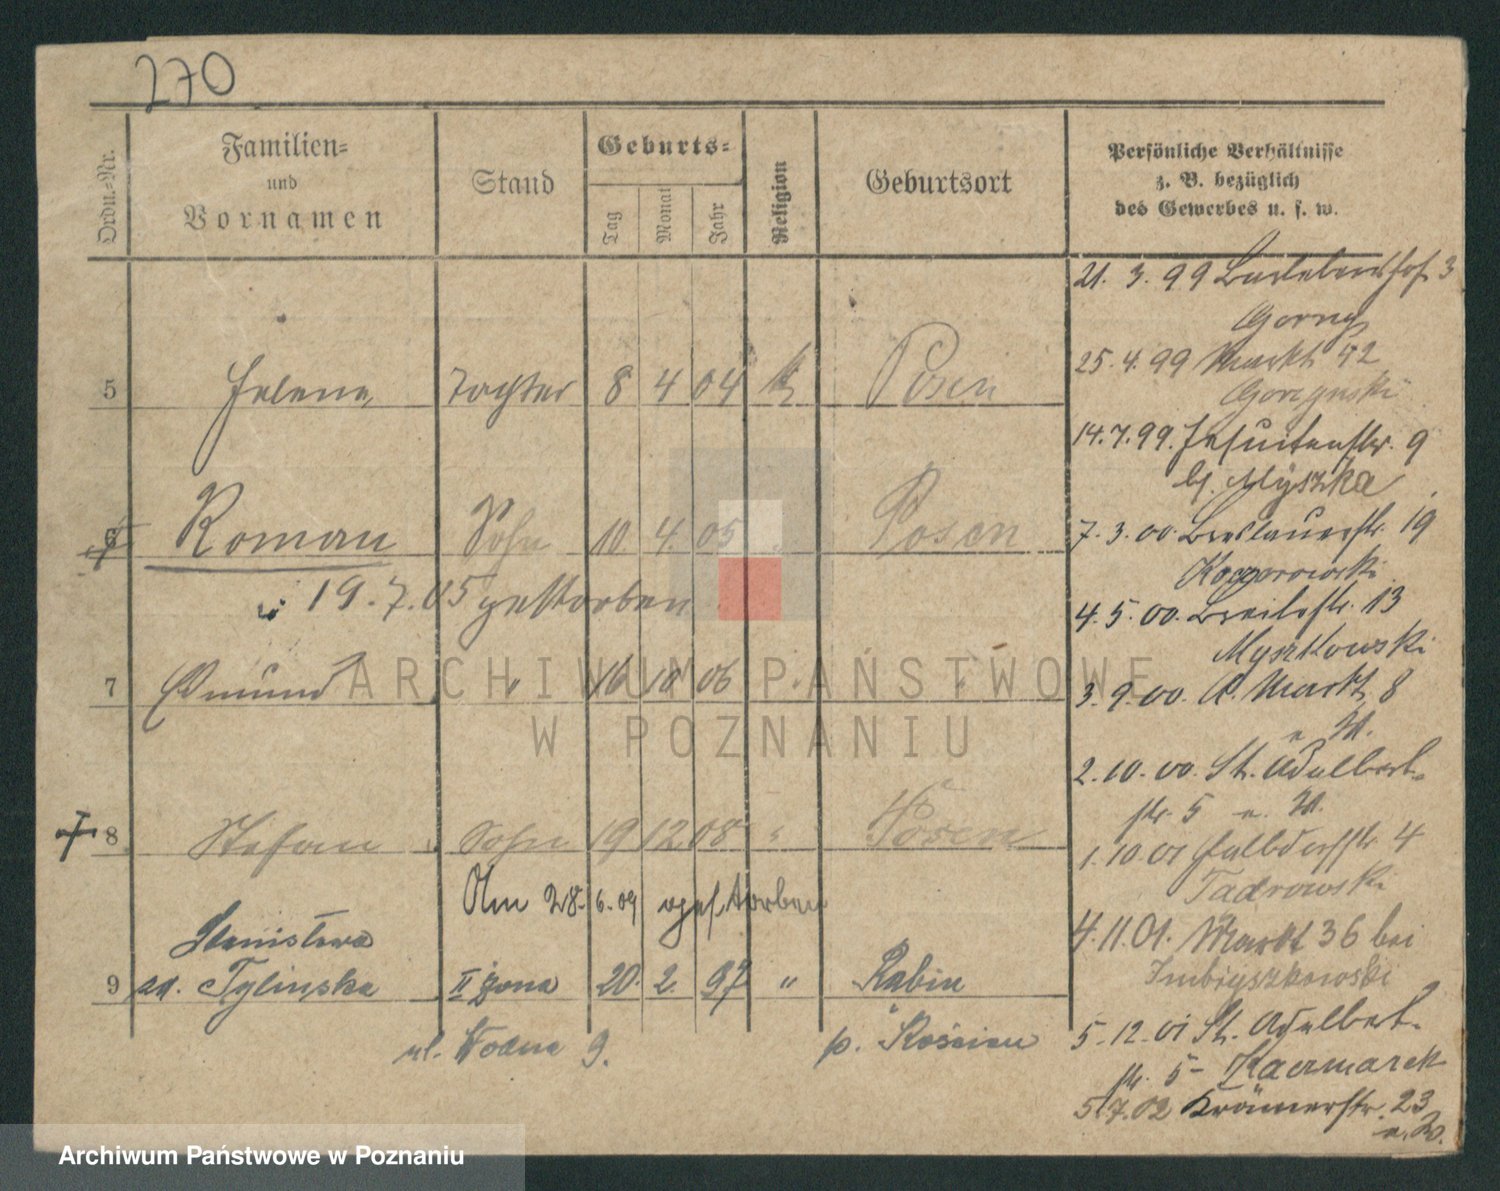 270
Ordn.-Nr.
Familien-
und
Vornamen
Stand
Geburts-
Tag
Monat
Jahr
Religion
Geburtsort
Persönliche Verhältnisse
z. B. bezüglich
des Gewerbes u. s. w.
5 Helene Tochter 8 4 04 k Posen
6 Roman Sohn 10. 4. 05 Posen
19.7.05 gestorben
7 Edmund " 16 10 06
8 Stefan Sohn 19 12 08 " Posen
Am 28. 6.09 gestorben
Stanisława
9 zd. Tylinska II żona 20. 2. 97 " Rabin
ul. Wodna 9. p. Kościan
21. 3. 99 3
Gorny
25.4.99 Markt 42
Gorzynski
14.7.99. Jesuitenstr. 9
bj. Myszka
7. 3. 00. Breslauerstr. 19
Kaczorowski
4. 5. 00. Breitestr. 13
Myszkowski
3. 9. 00. A. Markt 8
2. 10. 00. St. Adalbert-
str. 5
1. 10. 01 Halbdorfstr. 4
Tadrowski
4. 11. 01. Markt 36 bei
5. 12. 01 St. Adalbert-
str. 5 Kaczmarek
5.7.02 Krämerstr. 23
ARCHIWUM PAŃSTWOWE
W POZNANIU
Archiwum Państwowe w Poznaniu